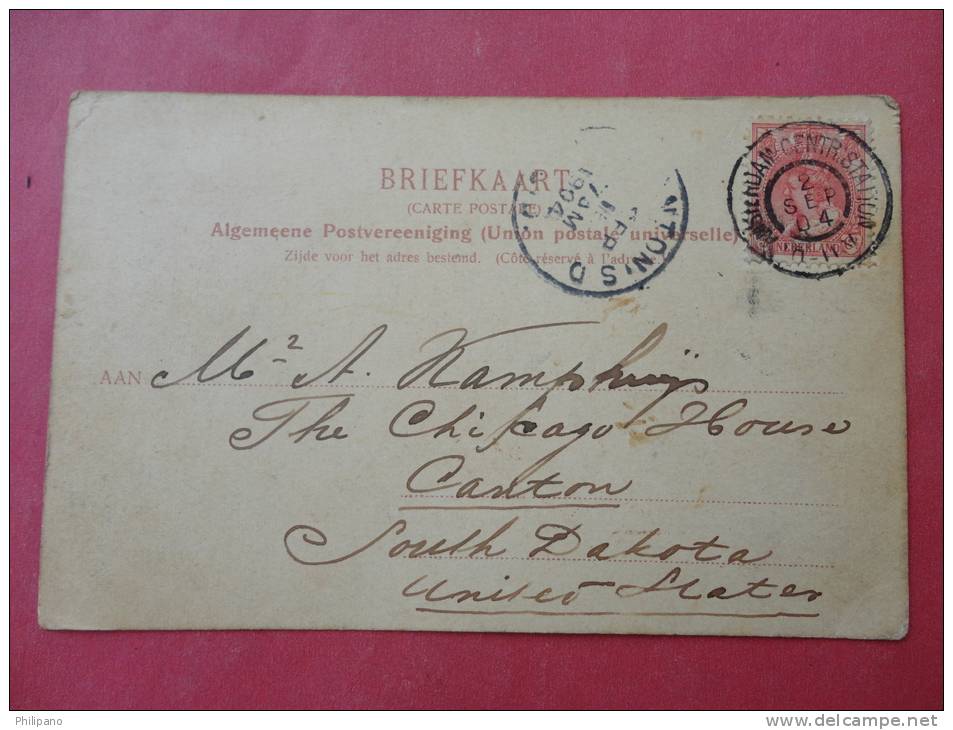 BRIEFKAART
(CARTE POSTALE)
Algemeene Postvereeniging (Union postale universelle).
Zijde voor het adres bestemd. (Côté réservé à l'adresse)
AMSTERDAM-CENTR:STATION
2
SEP
04
NEDERLAND
NTON, S D
7 AM
1904
AAN Mr A. Kamphuijs
The Chicago House
Canton
South Dakota
United States
Philipano
www.delcampe.net